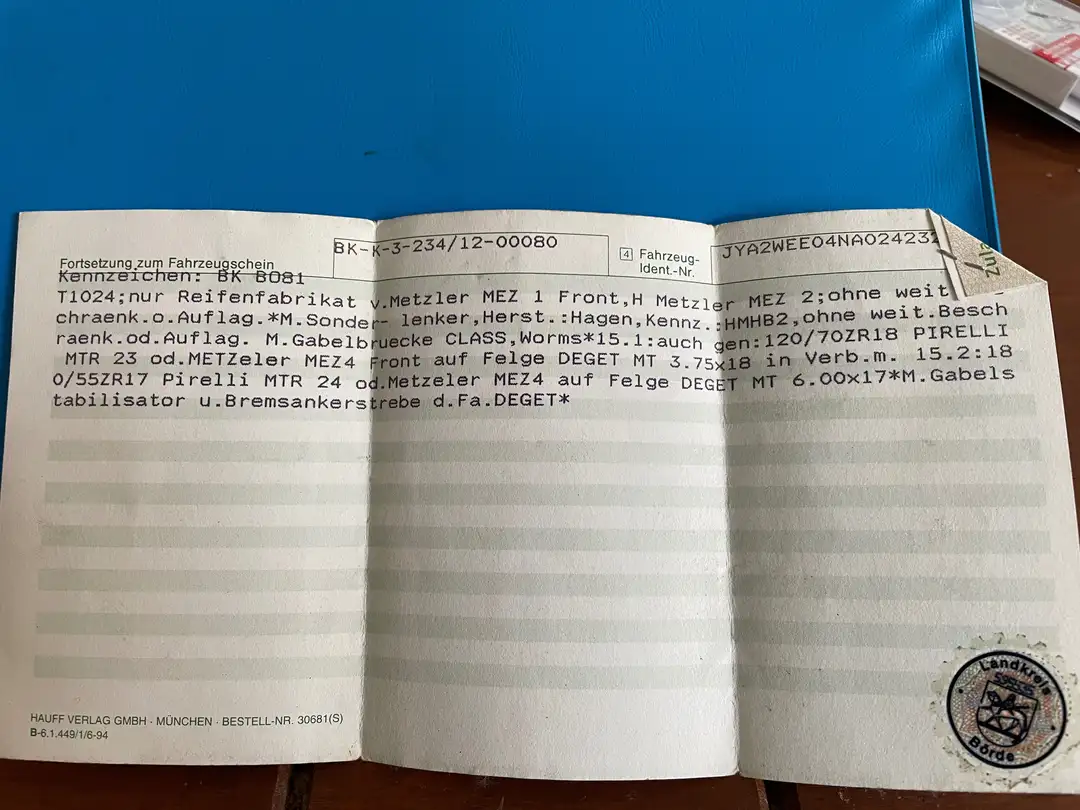 BK-K-3-234/12-00080
Fortsetzung zum Fahrzeugschein
4 Fahrzeug-
Ident.-Nr.
JYA2WEE04NA024232
Kennzeichen: BK BO81
T1024;nur Reifenfabrikat v.Metzler MEZ 1 Front,H Metzler MEZ 2;ohne weit.
chraenk.o.Auflag.*M.Sonder- lenker,Herst.:Hagen,Kennz.:HMHB2,ohne weit.Besch
raenk.od.Auflag. M.Gabelbruecke CLASS,Worms*15.1:auch gen:120/70ZR18 PIRELLI
MTR 23 od.METZeler MEZ4 Front auf Felge DEGET MT 3.75x18 in Verb.m. 15.2:18
0/55ZR17 Pirelli MTR 24 od.Metzeler MEZ4 auf Felge DEGET MT 6.00x17*M.Gabels
tabilisator u.Bremsankerstrebe d.Fa.DEGET*
HAUFF VERLAG GMBH · MÜNCHEN · BESTELL-NR. 30681(S)
B-6.1.449/1/6-94
Landkreis
Börde